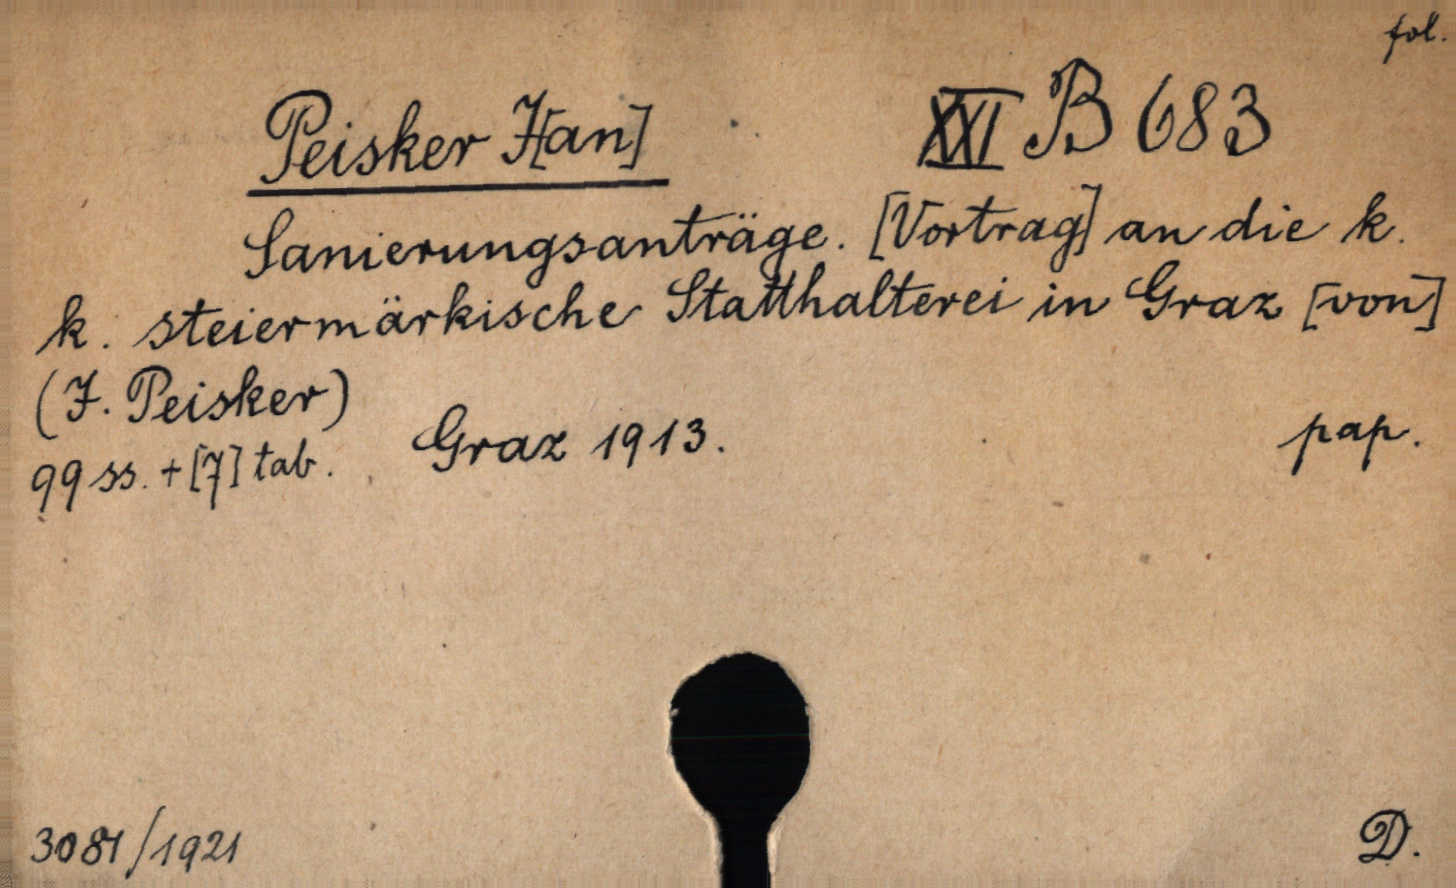 fol.
Peisker J[an] XXI B 683
Sanierungsanträge. [Vortrag] an die k.
k. steiermärkische Statthalterei in Graz [von]
(J. Peisker)
99 ss. + [7] tab. Graz 1913. pap.
3081/1921 D.